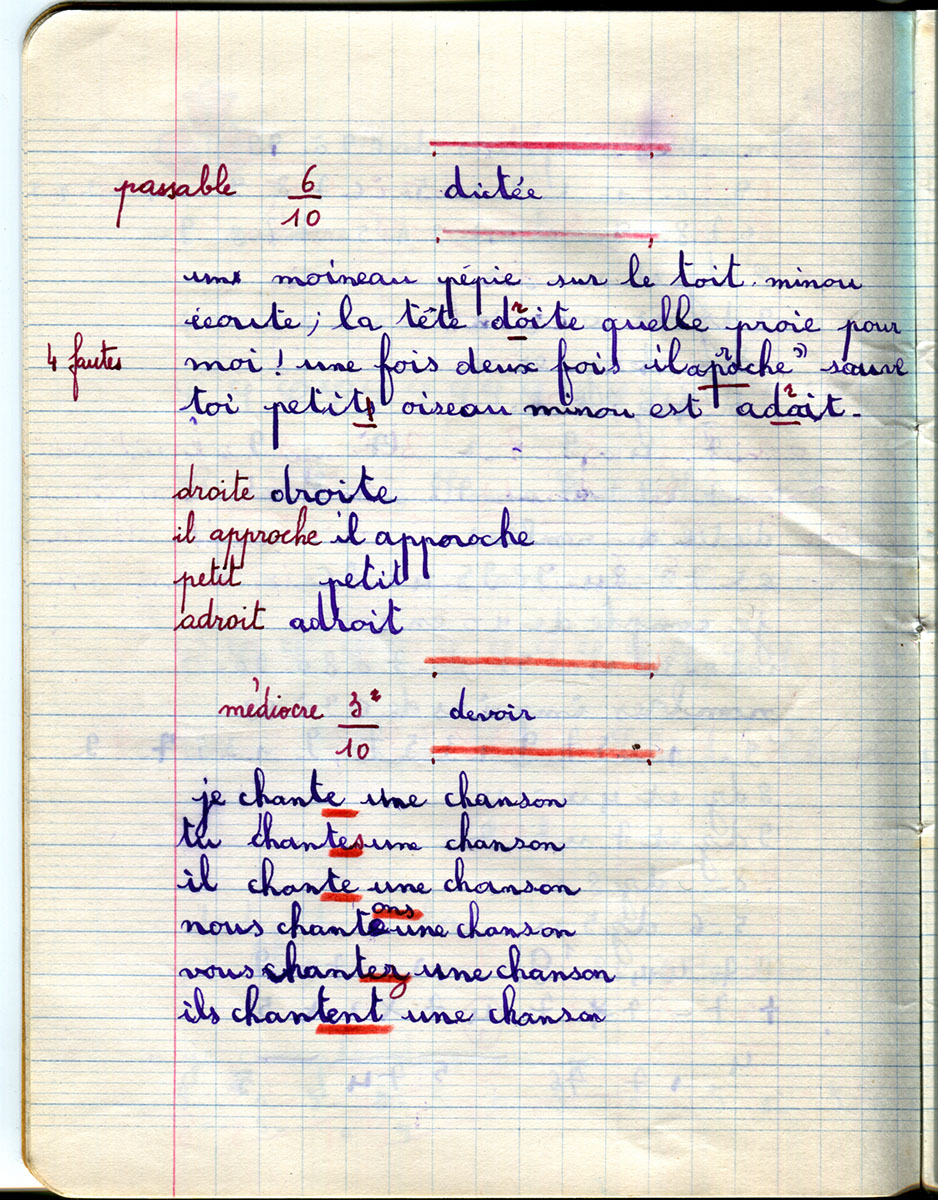 passable 6/10 dictée
une moineau pépie sur le toit. minou
écoute; la tête doite quelle proie pour
4 fautes moi! une fois deux fois il aproche sauve
toi petits oiseau minou est adait.
droite droite
il approche il approche
petit petit
adroit adroit
médiocre 3/10 devoir
je chante une chanson
tu chantes une chanson
il chante une chanson
ons
nous chante une chanson
vous chantez une chanson
ils chantent une chanson